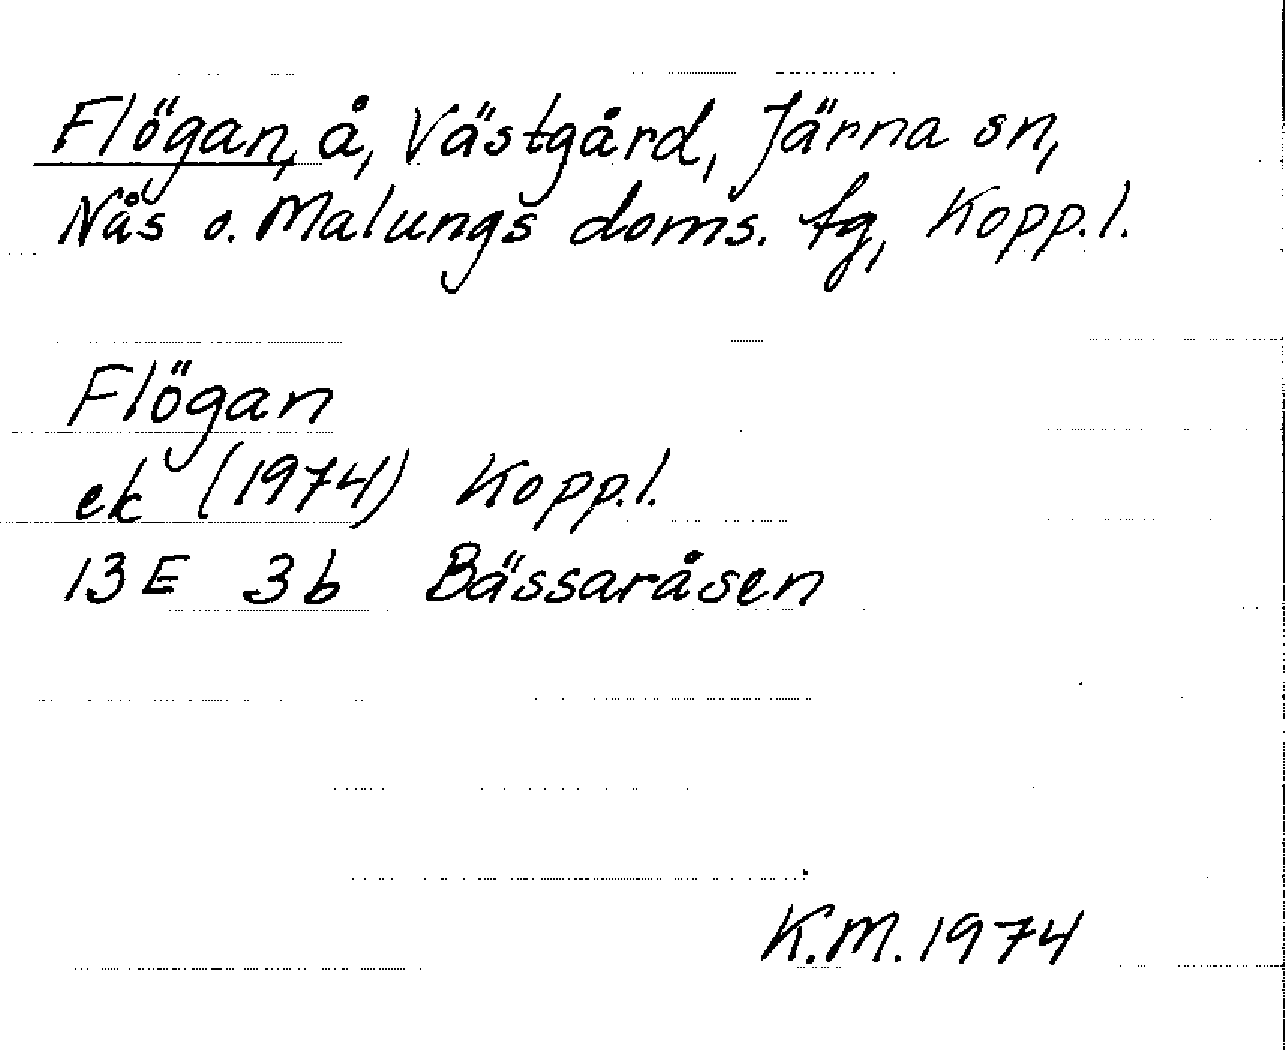 Flögan, å, Västgård, Järna sn,
Nås o. Malungs doms. tg, Kopp.l.
Flögan
ek (1974) Kopp.l.
13E 3b Bässaråsen
K.M. 1974